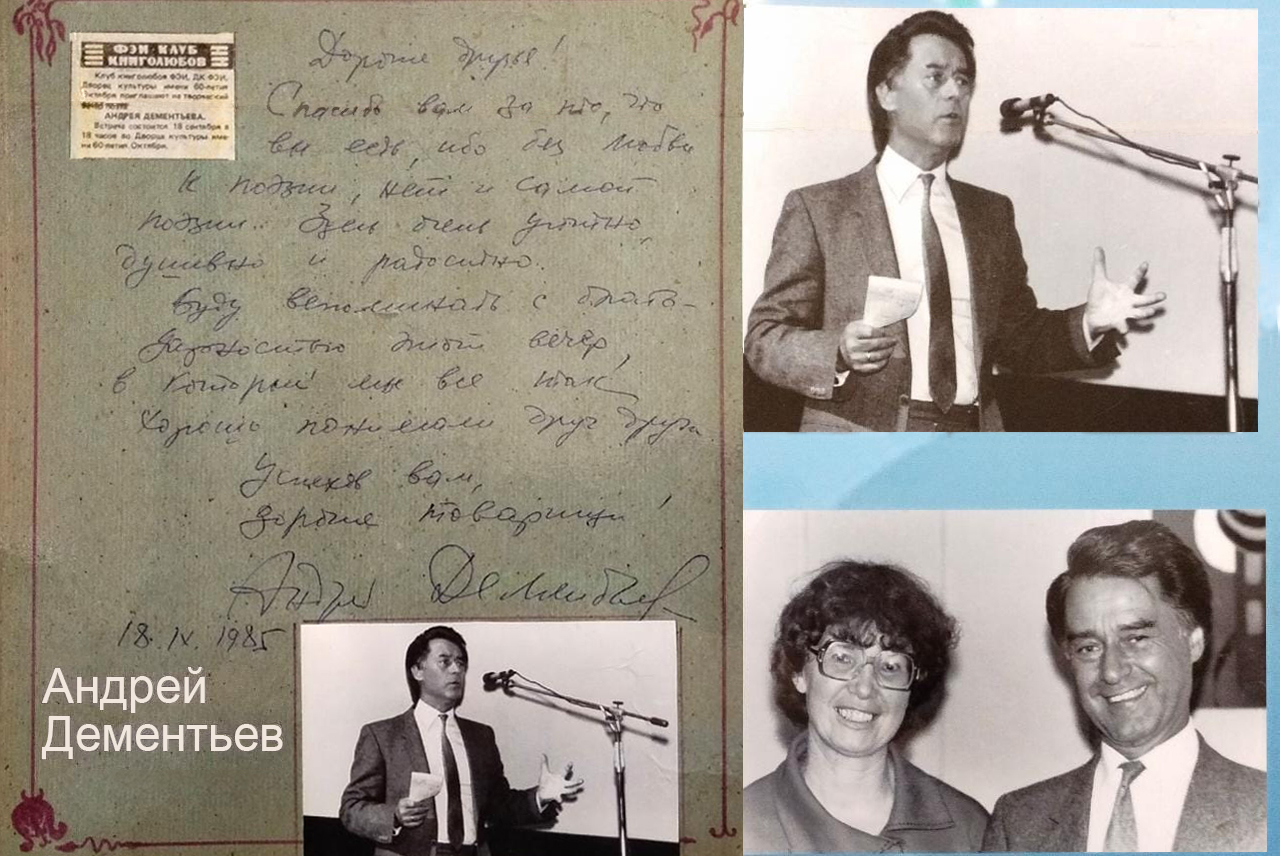 ФЭИ КЛУБ
КНИГОЛЮБОВ
Клуб книголюбов ФЭИ, ДК ФЭИ,
Дворец культуры имени 60-летия
Октября приглашают на творческий
вечер поэта
АНДРЕЯ ДЕМЕНТЬЕВА.
Встреча состоится 18 сентября в
18 часов во Дворце культуры име-
ни 60-летия Октября.
Дорогие друзья!
Спасибо вам за то, что
вы есть, ибо без любви
к поэзии, нет и самой
поэзии. Здесь было уютно,
душевно и радостно.
Буду вспоминать с благо-
дарностью этот вечер,
в который мы все так
хорошо понимали друг друга
Успехов вам,
дорогие товарищи!
Андрей Дементьев
18. IX 1985
Андрей
Дементьев